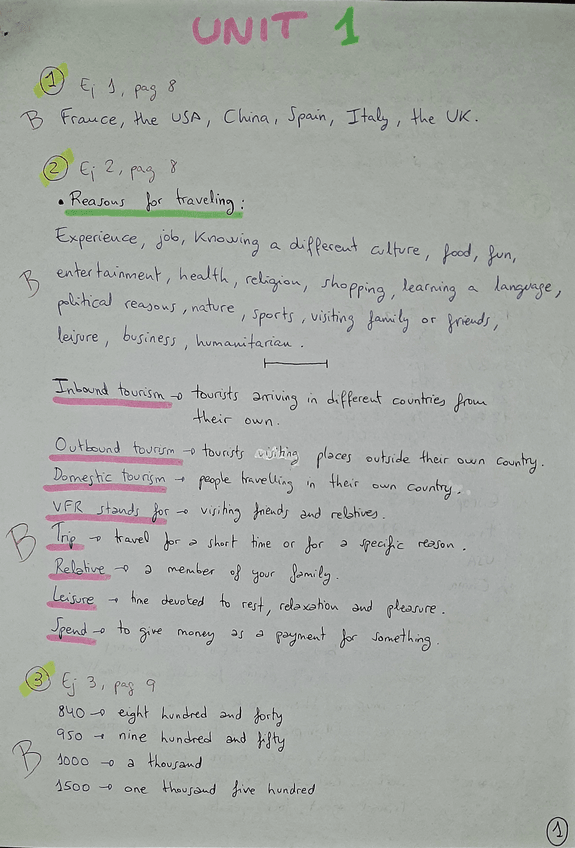 UNIT 1
1 Ej 1, pag 8
B France, the USA, China, Spain, Italy, the UK.
2 Ej 2, pag 8
• Reasons for traveling:
Experience, job, Knowing a different culture, food, fun,
B entertainment, health, religion, shopping, learning a language,
political reasons, nature, sports, visiting family or friends,
leisure, business, humanitarian.
Inbound tourism → tourists arriving in different countries from
their own.
Outbound tourism → tourists visiting places outside their own country.
Domestic tourism → people travelling in their own country.
VFR stands for → visiting friends and relatives.
B Trip → travel for a short time or for a specific reason.
Relative → a member of your family.
Leisure → time devoted to rest, relaxation and pleasure.
Spend → to give money as a payment for something.
3 Ej 3, pag 9
840 → eight hundred and forty
950 → nine hundred and fifty
B 1000 → a thousand
1500 → one thousand five hundred
1